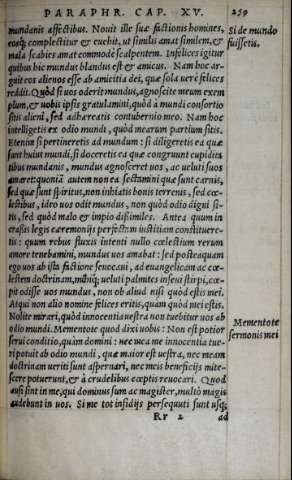 PARAPHR. CAP. XV. 259
mundanis affectibus. Nouit ille suæ factionis homines,
eosq; complectitur & euehit, ut similis amat similem, &
mala scabies amat commodè scalpentem. Infelices igitur
quibus hic mundus blandus est & amicus. Nam hoc ar-
guit eos alienos esse ab amicitia dei, quæ sola uerè felices
reddit. Quòd si uos oderit mundus, agnoscite meum exem
plum, & uobis ipsis gratulamini, quòd à mundi consortio
sitis alieni, sed adhæreatis contubernio meo. Nam hoc
intelligetis ex odio mundi, quòd mearum partium sitis.
Etenim si pertineretis ad mundum: si diligeretis ea quæ
sunt huius mundi, si doceretis ea quæ congruunt cupidita
tibus mundanis, mundus agnosceret uos, ac ueluti suos
amaret: quoniã autem non ea sectamini quæ sunt carnis,
sed quæ sunt spiritus, non inhiatis bonis terrenis, sed cœ-
lestibus, ideo uos odit mundus, non quòd odio digni si-
tis, sed quòd malo & impio dißimiles. Antea quum in
craßis legis ceremonijs perfectam iustitiam constituere-
tis: quum rebus fluxis intenti nullo cœlestium rerum
amore tenebamini, mundus uos amabat: sed posteaquam
ego uos ab ista factione seuocaui, ad euangelicam ac cœ-
lestem doctrinam, mihiq; ueluti palmites inseui stirpi, cœ-
pit odisse uos mundus, non ob aliud nisi quòd estis mei.
Atqui non alio nomine felices eritis, quàm quòd mei estis.
Nolite mirari, quòd innocentia uestra non tuebitur uos ab
odio mundi. Mementote quod dixi uobis: Non est potior
serui conditio, quàm domini: nec mea me innocentia tue-
ri potuit ab odio mundi, quæ maior est uestra, nec meam
doctrinam ueriti sunt aspernari, nec meis beneficijs mite-
scere potuerunt, & à crudelibus cœptis reuocari. Quod
ausi sint in me, qui dominus sum ac magister, multò magis
audebunt in uos. Si me tot insidijs persequuti sunt usq;
Rr 2 ad
Si de mundo
fuissetis.
Mementote
sermonis mei